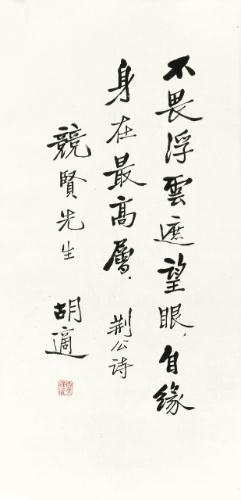 不畏浮雲遮望眼，自緣
身在最高層．荆公诗
競賢先生
胡適